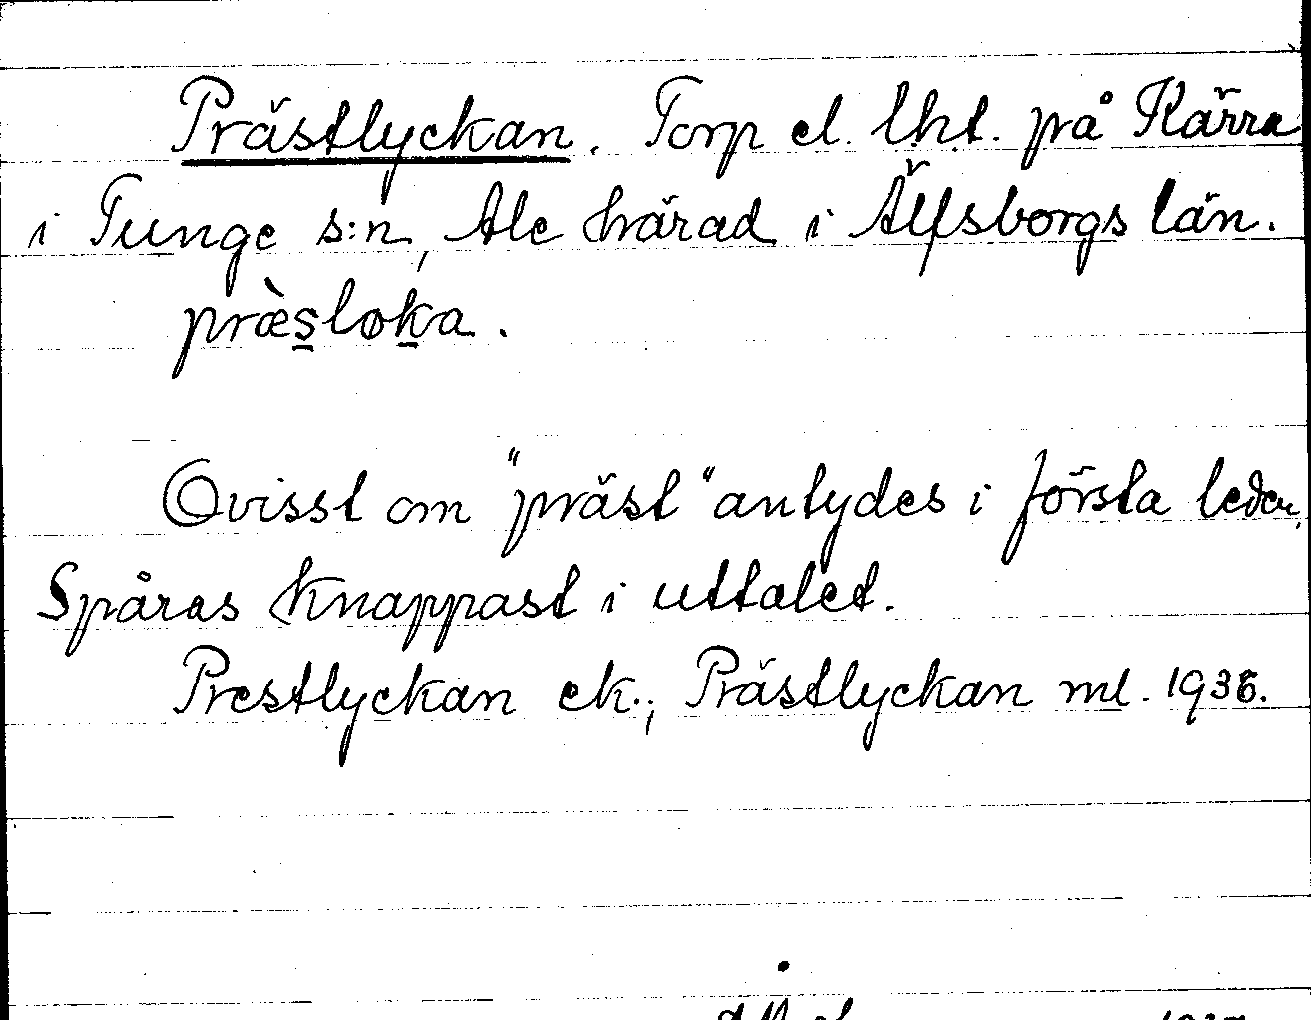 Prästlyckan. Torp el. lht. på Kärra
i Tunge s:n, Ale härad i Älfsborgs län.
præ̀s̲løk̲a.
Ovisst om "präst" antydes i första leden,
Spåras knappast i uttalet.
Prestlyckan ek.; Prästlyckan ml. 1936.